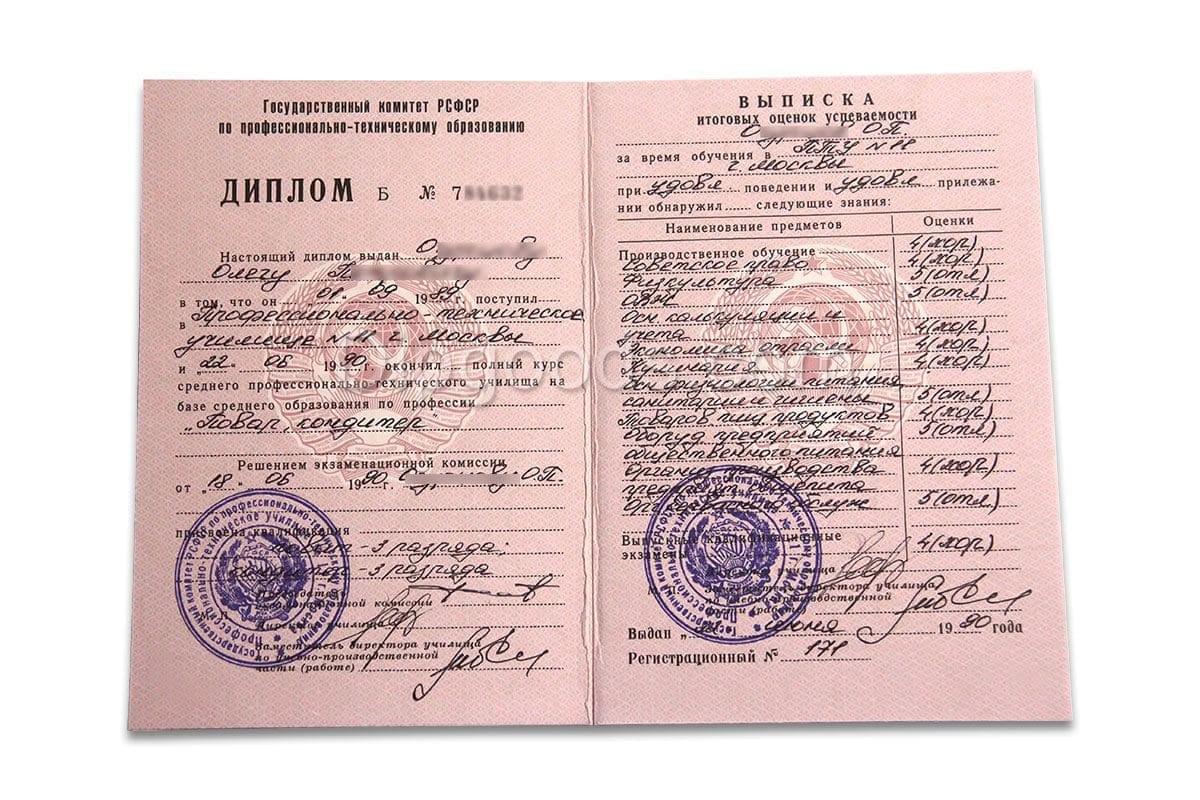 Государственный комитет РСФСР
по профессионально-техническому образованию
ДИПЛОМ Б № 7
Настоящий диплом выдан О
Олегу П
в том, что он 01 " 09 1989 г. поступил
в Профессионально техническое
училище №11 г. Москвы
и „22" 06 1990 г. окончил полный курс
среднего профессионально-технического училища на
базе среднего образования по профессии
„Повар, кондитер"
Решением экзаменационной комиссии
от „18" 06 1990 О.П.
присвоена квалификация
повар - 3 разряда;
кондитер - 3 разряда
Председатель
экзаменационной комиссии
Директор училища
Заместитель директора училища
по учебно-производственной
части (работе)
ВЫПИСКА
итоговых оценок успеваемости
О О.П.
за время обучения в ПТУ №
г. Москвы
при удовл. поведении и удовл прилежа-
нии обнаружил следующие знания:
Наименование предметов Оценки
Производственное обучение 4(хор.)
Советское право 4(хор.)
Физкультура 5(отл)
5(отл)
Осн калькуляции и
учета 4(хор)
Экономика отрасли 4(хор)
Кулинария 4(хор)
Осн физиологии питания
санитарии и гигиены 5(отл)
Товаров пищ продуктов 4(хор)
Оборуд предприятий 5(отл)
общественного питания
производства 4(хор)
5(отл)
Выпускные квалификационные
экзамены 4(хор)
училища
Заместитель директора училища
по учебно-производственной
части (работе)
Выдан „ июня 1990 года
Регистрационный № 171